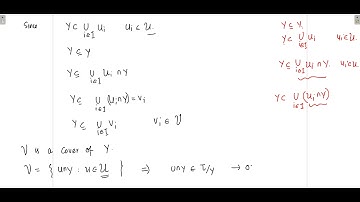 Since Y ⊂ ∪ᵢ∈I uᵢ uᵢ ∈ 𝒰
Y ⊆ Y
Y ⊆ ∪ᵢ∈I uᵢ ∩ Y
Y ⊆ ∪ᵢ∈I (uᵢ ∩ Y) = vᵢ
Y ⊆ ∪ᵢ∈I vᵢ vᵢ ∈ 𝒱
𝒱 is a cover of Y.
𝒱 = { u∩Y : u ∈ 𝒰 } ⇒ u∩Y ∈ τ/Y →
Y ⊆ Y.
Y ⊂ ∪ᵢ∈I uᵢ uᵢ ∈ 𝒰.
Y ⊆ ∪ᵢ∈I uᵢ ∩ Y. uᵢ ∈ 𝒰.
Y ⊂ ∪ᵢ∈I (uᵢ ∩ Y)